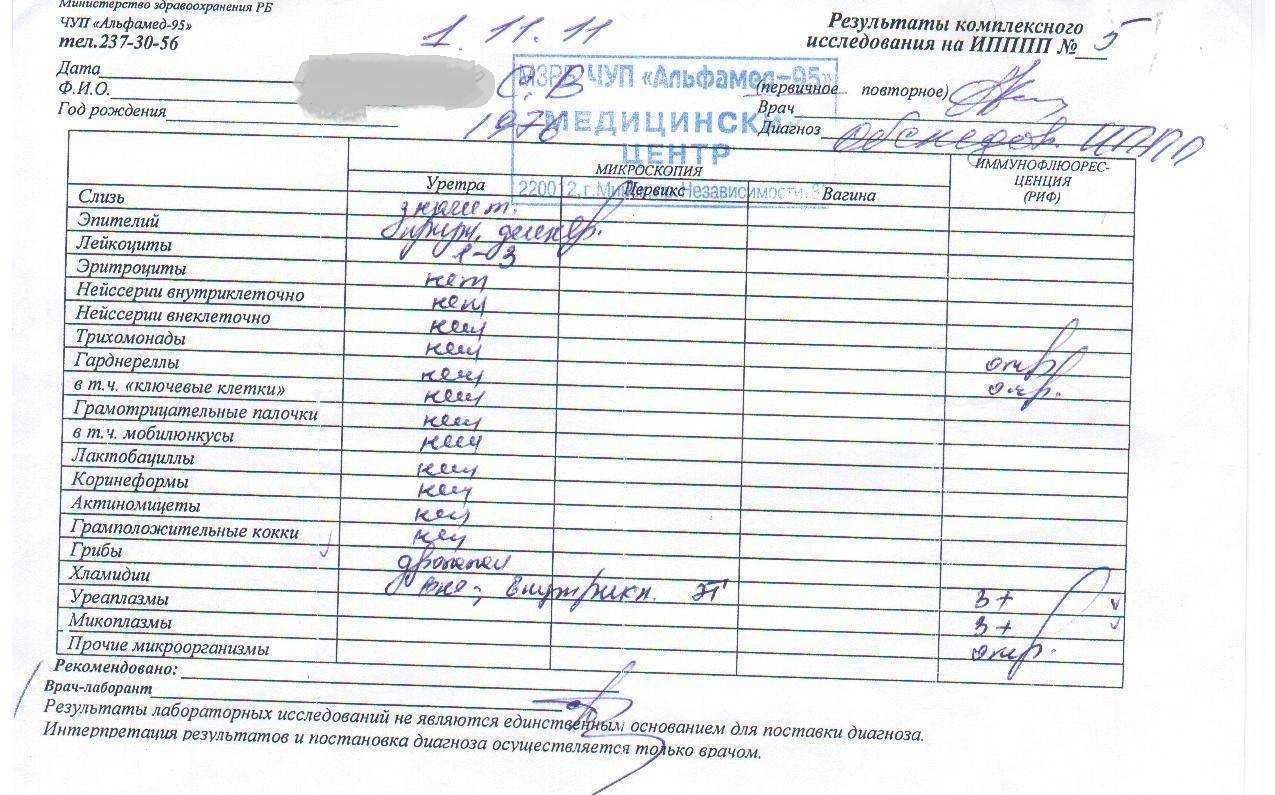 Министерство здравоохранения РБ
ЧУП «Альфамед-95»
тел.237-30-56
1.11.11
Результаты комплексного
исследования на ИПППП № 5
Дата
Ф.И.О. С. В
Год рождения 1976
МЗРБ ЧУП «Альфамед-95»
МЕДИЦИНСКИЙ
ЦЕНТР
220012, г.Минск, Независимости,
(первичное повторное)
Врач
Диагноз обследов. ИППП
МИКРОСКОПИЯ
ИММУНОФЛЮОРЕС-
ЦЕНЦИЯ
(РИФ)
Уретра Цервикс Вагина
Слизь значит.
Эпителий
Лейкоциты 1-3
Эритроциты нет
Нейссерии внутриклеточно нет
Нейссерии внеклеточно нет
Трихомонады нет отр
Гарднереллы нет отр.
в т.ч. «ключевые клетки» нет
Грамотрицательные палочки нет
в т.ч. мобилюнкусы нет
Лактобациллы нет
Коринеформы нет
Актиномицеты нет
Грамположительные кокки нет
Грибы
Хламидии вне-, внутрикл.
Уреаплазмы 3+
Микоплазмы 3+
Прочие микроорганизмы отр.
Рекомендовано:
Врач-лаборант
Результаты лабораторных исследований не являются единственным основанием для поставки диагноза.
Интерпретация результатов и постановка диагноза осуществляется только врачом.